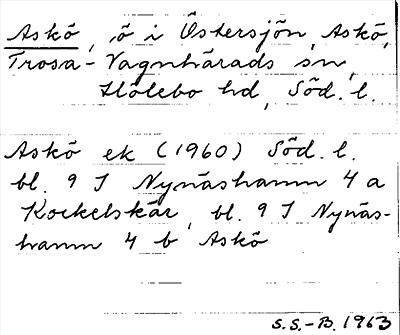 Askö, ö i Östersjön, Askö,
Trosa-Vagnhärads sn,
Hölebo hd, Söd. l.
Askö ek (1960) Söd. l.
bl. 9 I Nynäshamn 4 a
Kockelskär, bl. 9 I Nynäs-
hamn 4 b Askö
S.S.-B. 1963